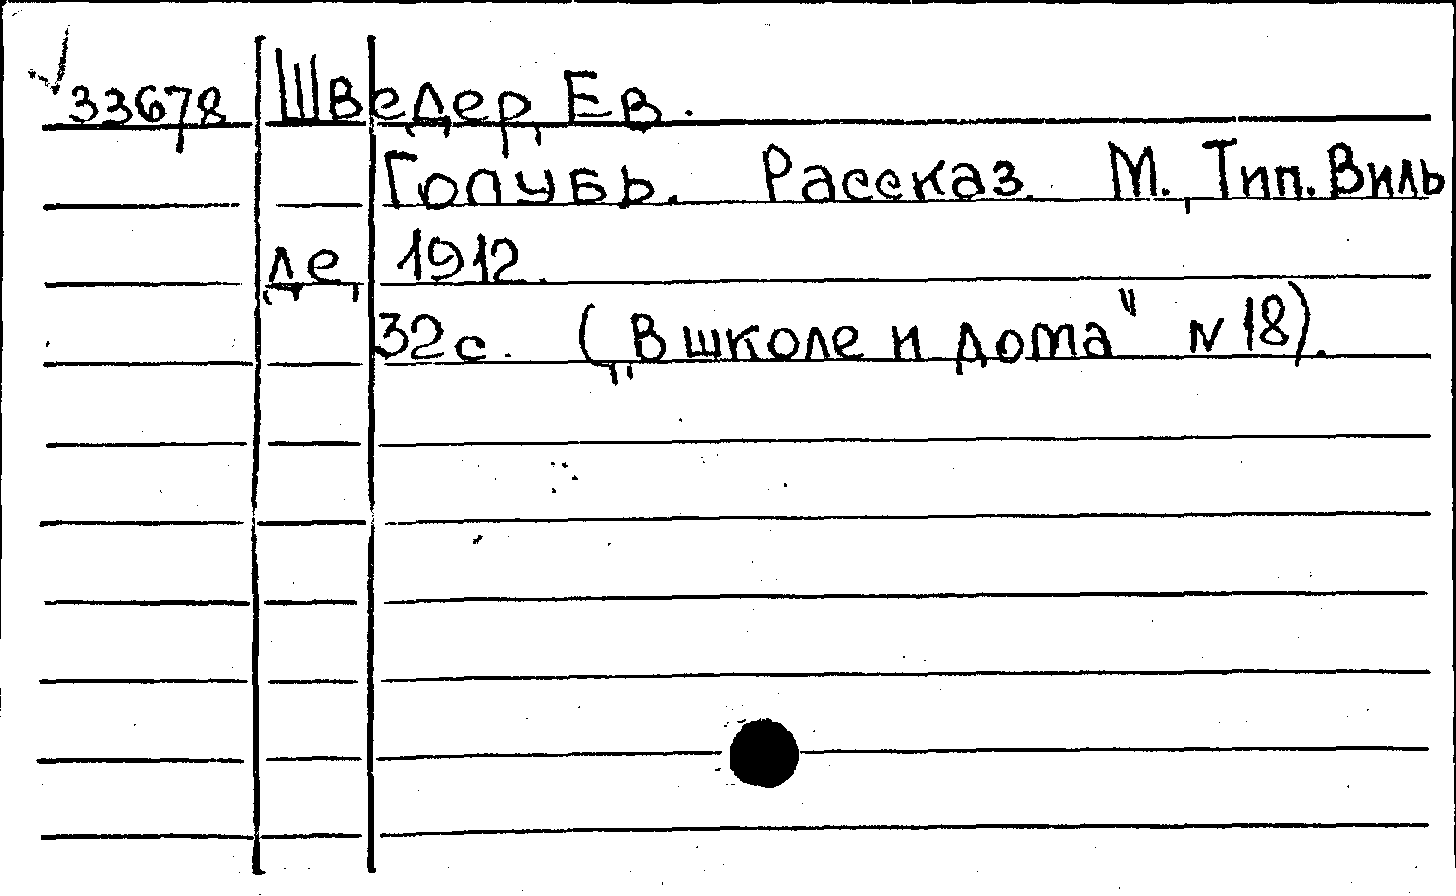 33678 Шведер, Ев.
Голубь. Рассказ. М., Тип. Виль
де, 1912.
32 с. („В школе и дома" N 18).